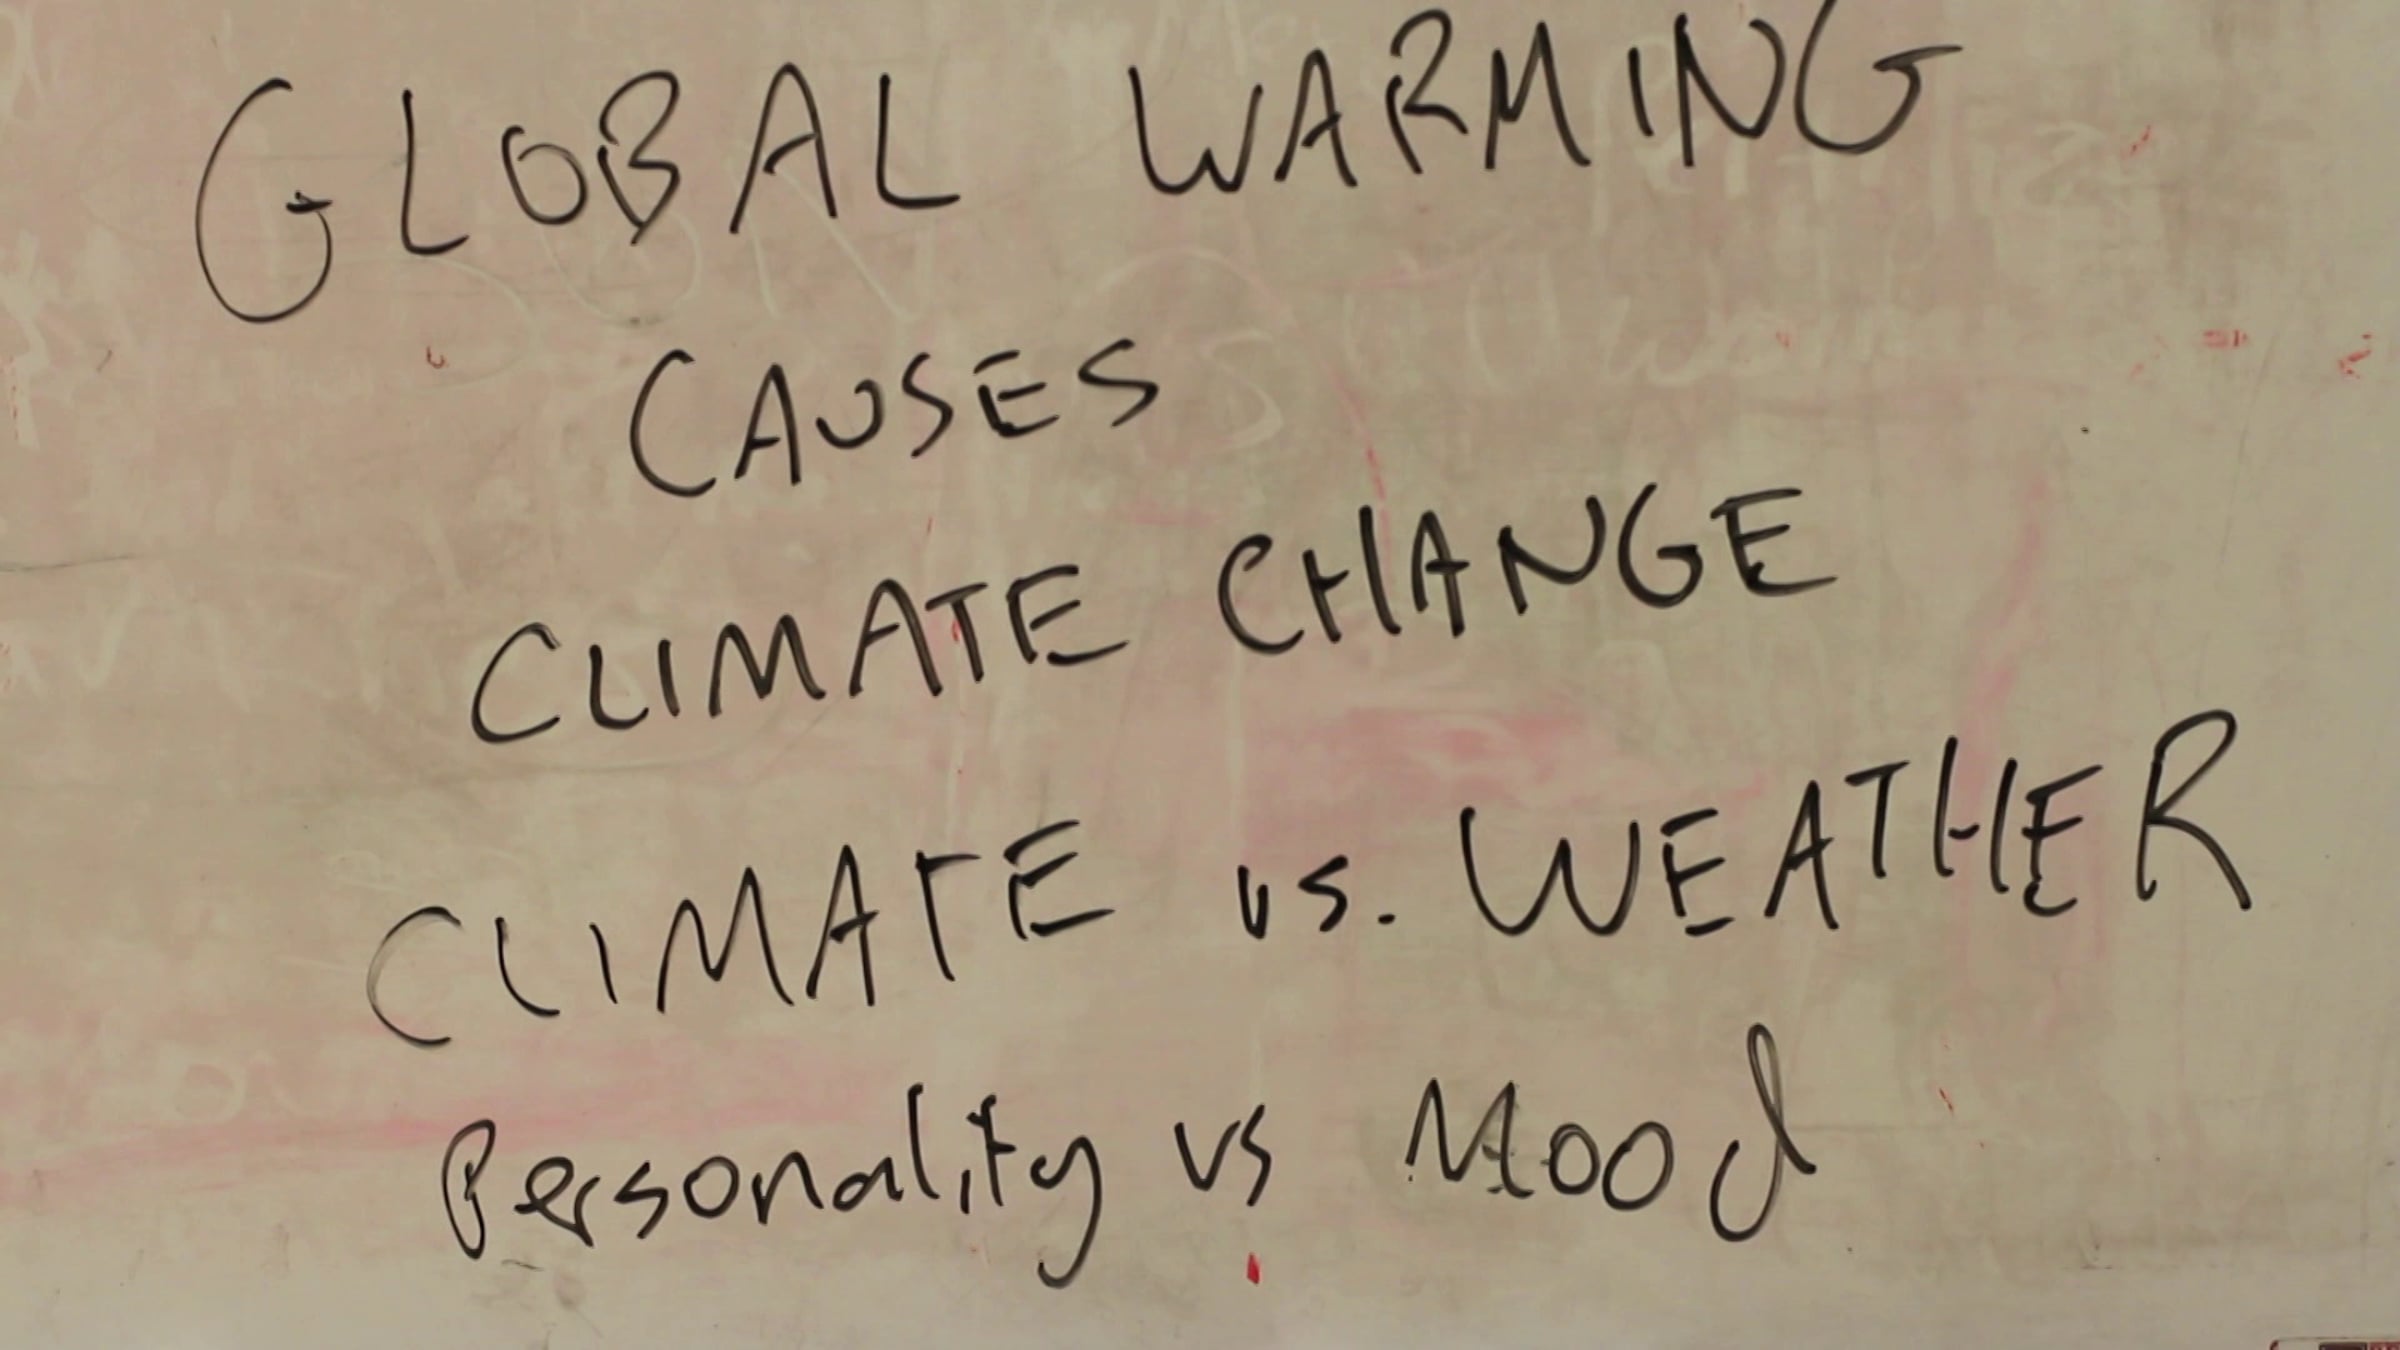 GLOBAL WARMING
CAUSES
CLIMATE CHANGE
CLIMATE vs. WEATHER
Personality vs Mood